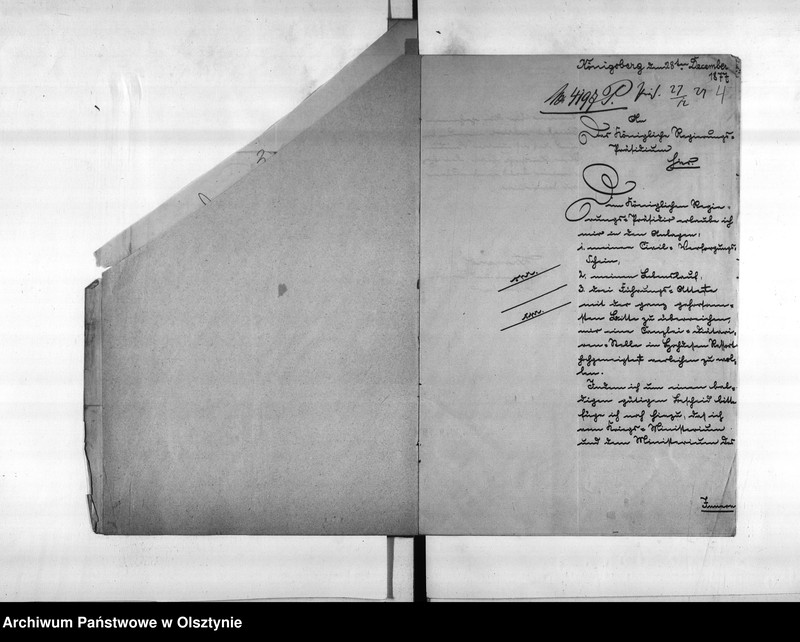 Königsberg den 28ten December
1877
No 4197 P. Prs. 27/12 77 4
An
Das Königliche Regierungs-
Präsidium
Hier.
Dem Königlichen Regie-
rungs-Präsidio erlaube ich
mir in den Anlagen,
1. meinen Civil-Versorgungs-
Schein,
2. meinen Lebenslauf,
3. drei Führungs-Atteste
mit der ganz gehorsam-
sten Bitte zu überreichen,
mir eine Canzlei-Diätari-
en-Stelle in Hochdesen Ressort
hochgeneigtest verleihen zu wol-
len.
Indem ich um einen bal-
digen gütigen Bescheid bitte
füge ich noch hinzu, daß ich
vom Kriegs-Ministerium
und dem Ministerium des
Innern
Archiwum Państwowe w Olsztynie